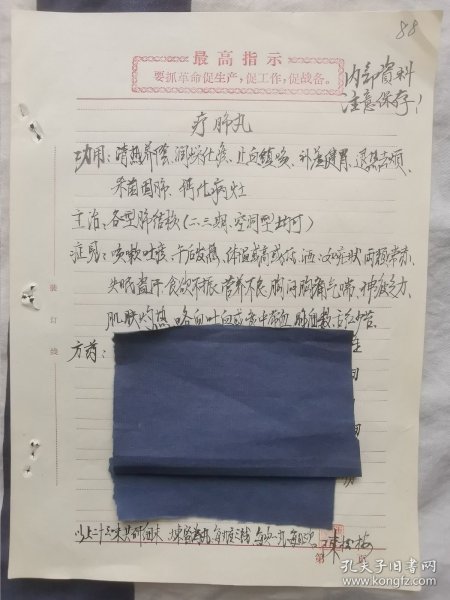 88
最高指示
要抓革命促生产，促工作，促战备。
内部资料
注意保存！
疗肺丸
功用：清热养阴、润燥化痰、止血镇咳、补益健胃、退热去烦、
杀菌固肺、钙化病灶
主治：各型肺结核（二、三期、空洞型均可）
症见：咳嗽吐痰、午后发热、体温或高或低、洒 两颧 
失眠盗汗、食欲不振、营养不良、胸闷胸痛气喘、神疲乏力、
肌肤灼热、咯血吐血或 中 血
方药：
装订线
以上二十三味共研细末 炼蜜为丸 每 每 一丸 每日
第
孔夫子旧书网